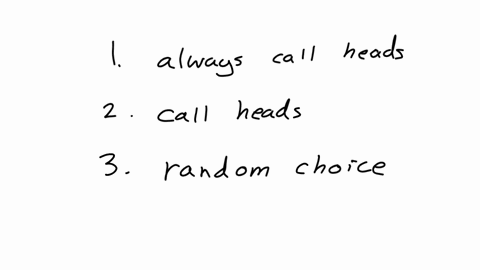 1. always call heads
2. call heads
3. random choice